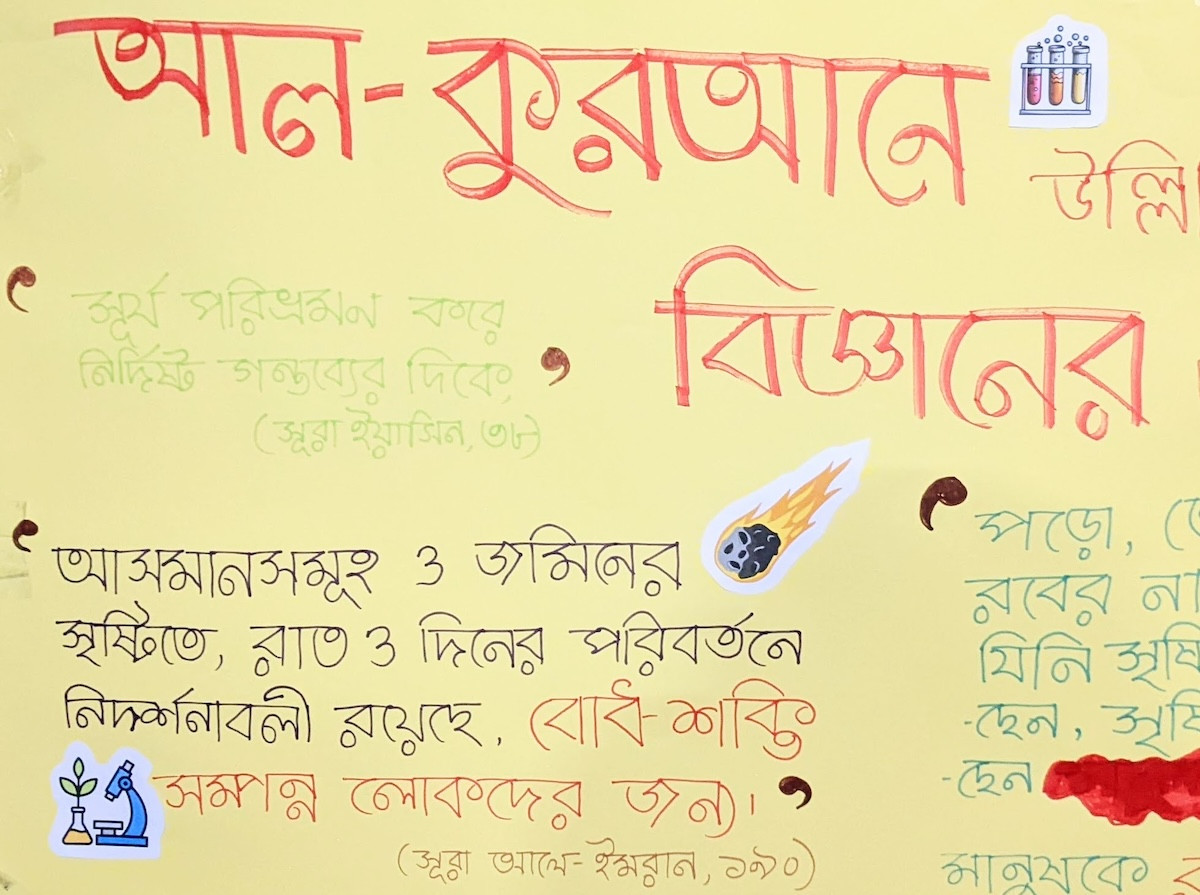 আল-কুরআনে
বিজ্ঞানের
সূর্য পরিভ্রমন করে
নির্দিষ্ট গন্তব্যের দিকে,
(সূরা ইয়াসিন, ৩৮)
আসমানসমূহ ও জমিনের
সৃষ্টিতে, রাত ও দিনের পরিবর্তনে
নিদর্শনাবলী রয়েছে, বোধ-শক্তি
সম্পন্ন লোকদের জন্য।
(সূরা আলে-ইমরান, ১৯০)
পড়ো,
রবের
যিনি
-ছেন,
-ছেন
মানুষকে